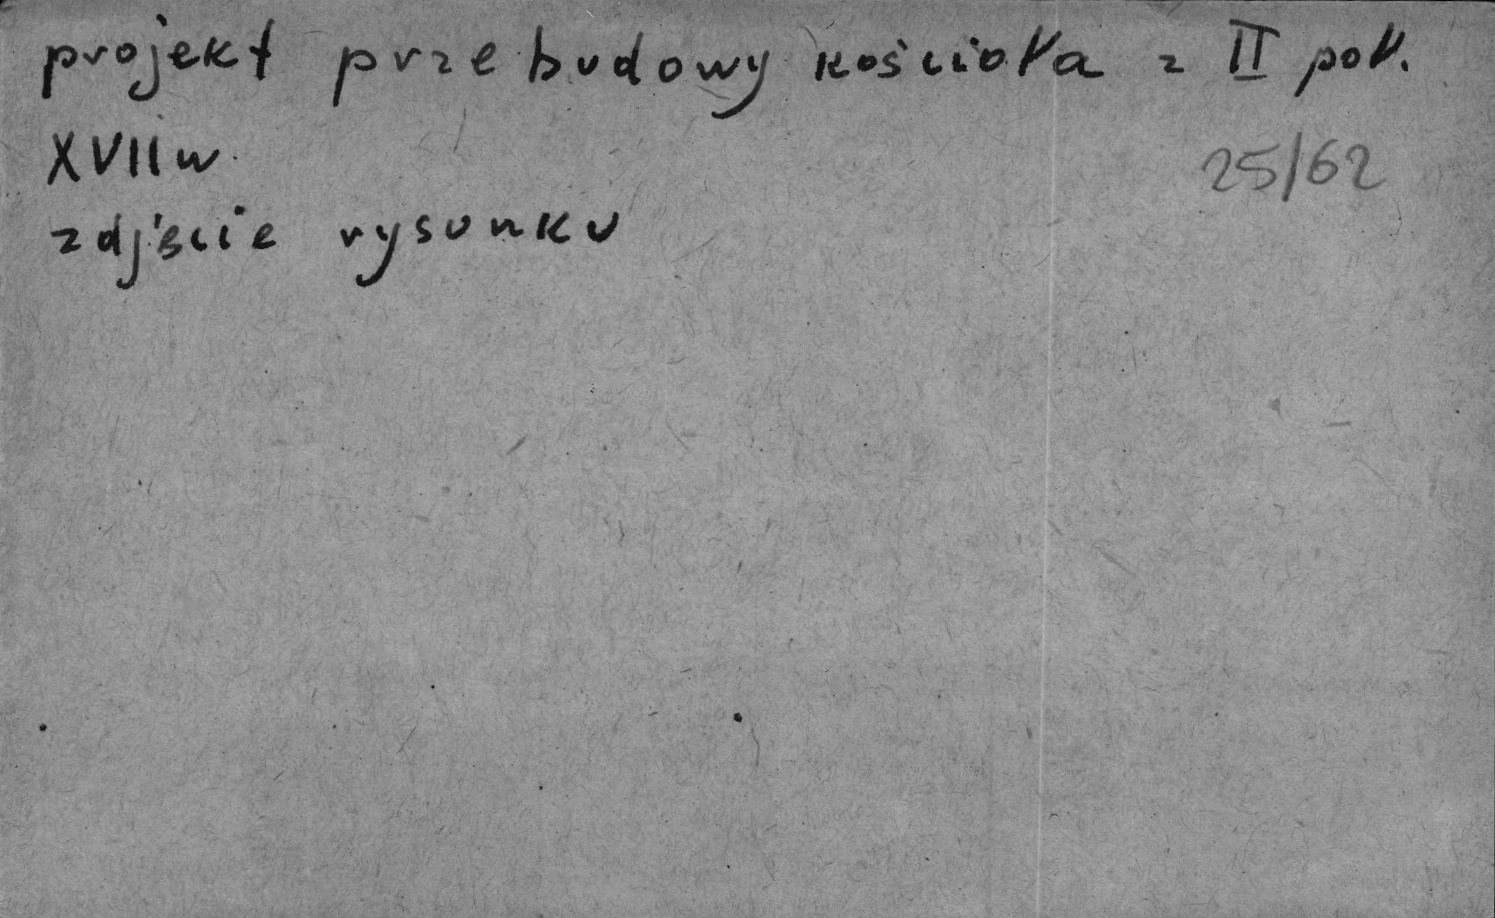 projekt przebudowy kościoła z II poł.
XVII w.
25/62
zdjęcie rysunku